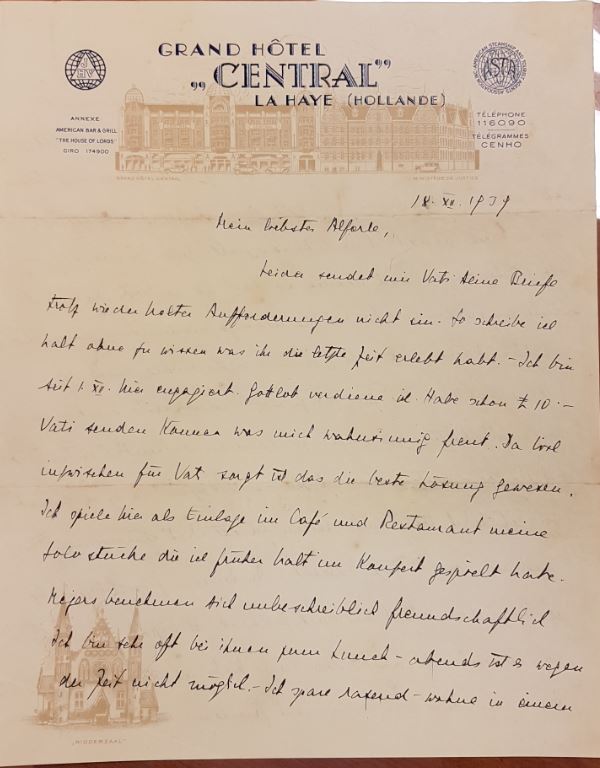 GRAND HÔTEL
„CENTRAL”
LA HAYE (HOLLANDE)
ANNEXE
AMERICAN BAR & GRILL
"THE HOUSE OF LORDS"
GIRO 174900
ASTA
TÉLÉPHONE
116090
TÉLÉGRAMMES
CENHO
GRAND HÔTEL CENTRAL
MINISTÈRE DE JUSTICE
18. XII. 1939
Mein liebstes Alferle,
Leider sendet mir Vati Deine Briefe
trotz wiederholter Aufforderungen nicht ein. So schreibe ich
halt ohne zu wissen was ihr die letzte Zeit erlebt habt. – Ich bin
seit 1. XII. hier engagiert. Gottlob verdiene ich. Habe schon £ 10.–
Vati senden können was mich wahnsinnig freut. Da
inzwischen für Vati sorgt ist das die beste Lösung gewesen.
Ich spiele hier als Einlage im Café und Restaurant meine
Solostücke die ich früher halt im Konzert gespielt habe.
Meyers benehmen sich unbeschreiblich freundschaftlich
Ich bin sehr oft bei ihnen zum Lunch – abends ist es wegen
der Zeit nicht möglich. – Ich spare rasend – wohne in einem
„RIDDERZAAL”